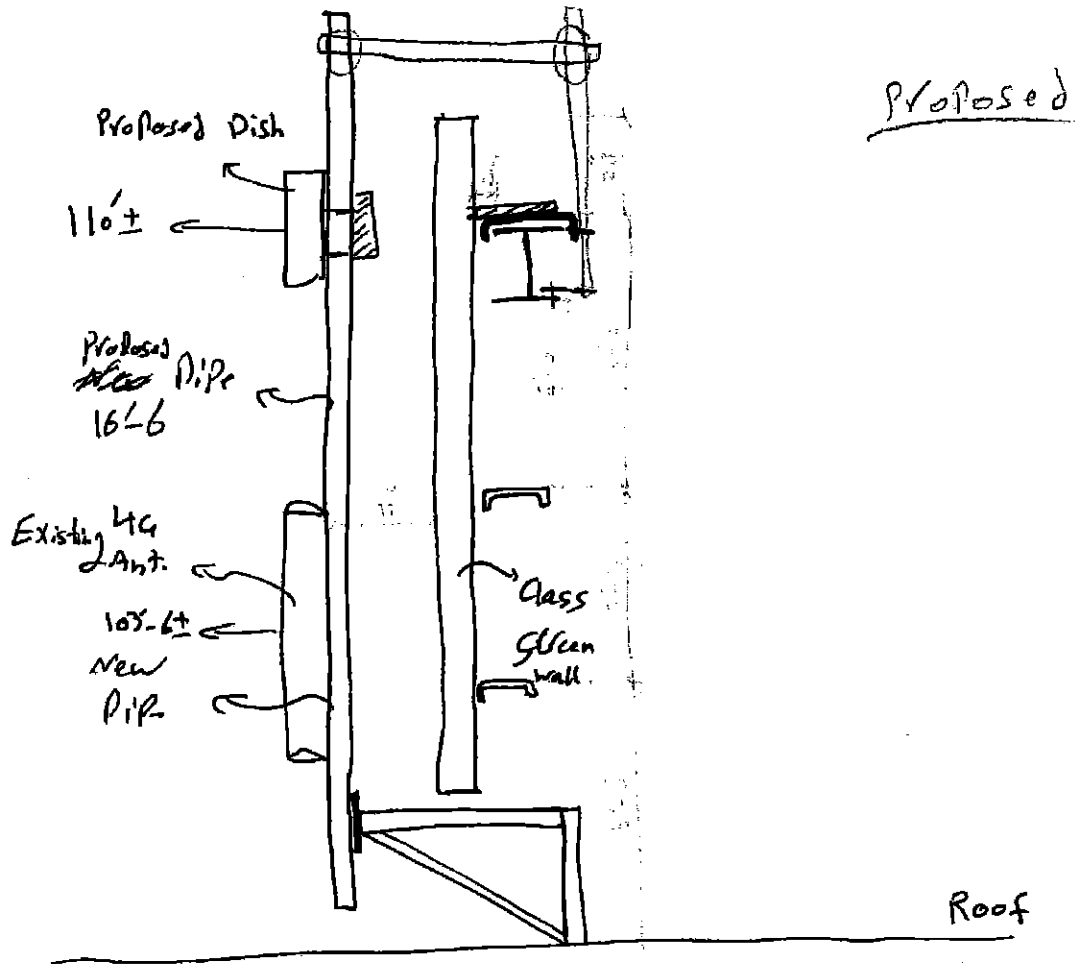 Proposed
Proposed Dish
110'±
Proposed
Pipe
16'-6
Existing 4G
Ant.
103'-6±
New
Pipe
Glass
Screen
wall.
Roof